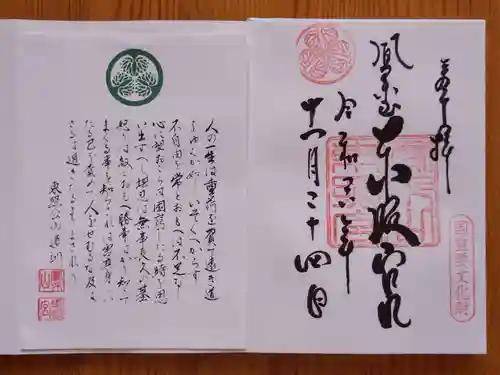 奉拝
鳳来山東照宮
令和
年
十一月二十四日
国重要文化財
人の一生は重荷を負て遠き道
をゆくか如しいそくへからす
不自由を常とおもへは不足なし
心に望おこらは困窮したる時を思
い出すへし堪忍は無事長久の基
怒りは敵とおもへ勝事はかり知て
まくる事を知らされは害其身にい
たる己を責て人をせむるな及は
さるは過きたるよりまされり
東照公御遺訓